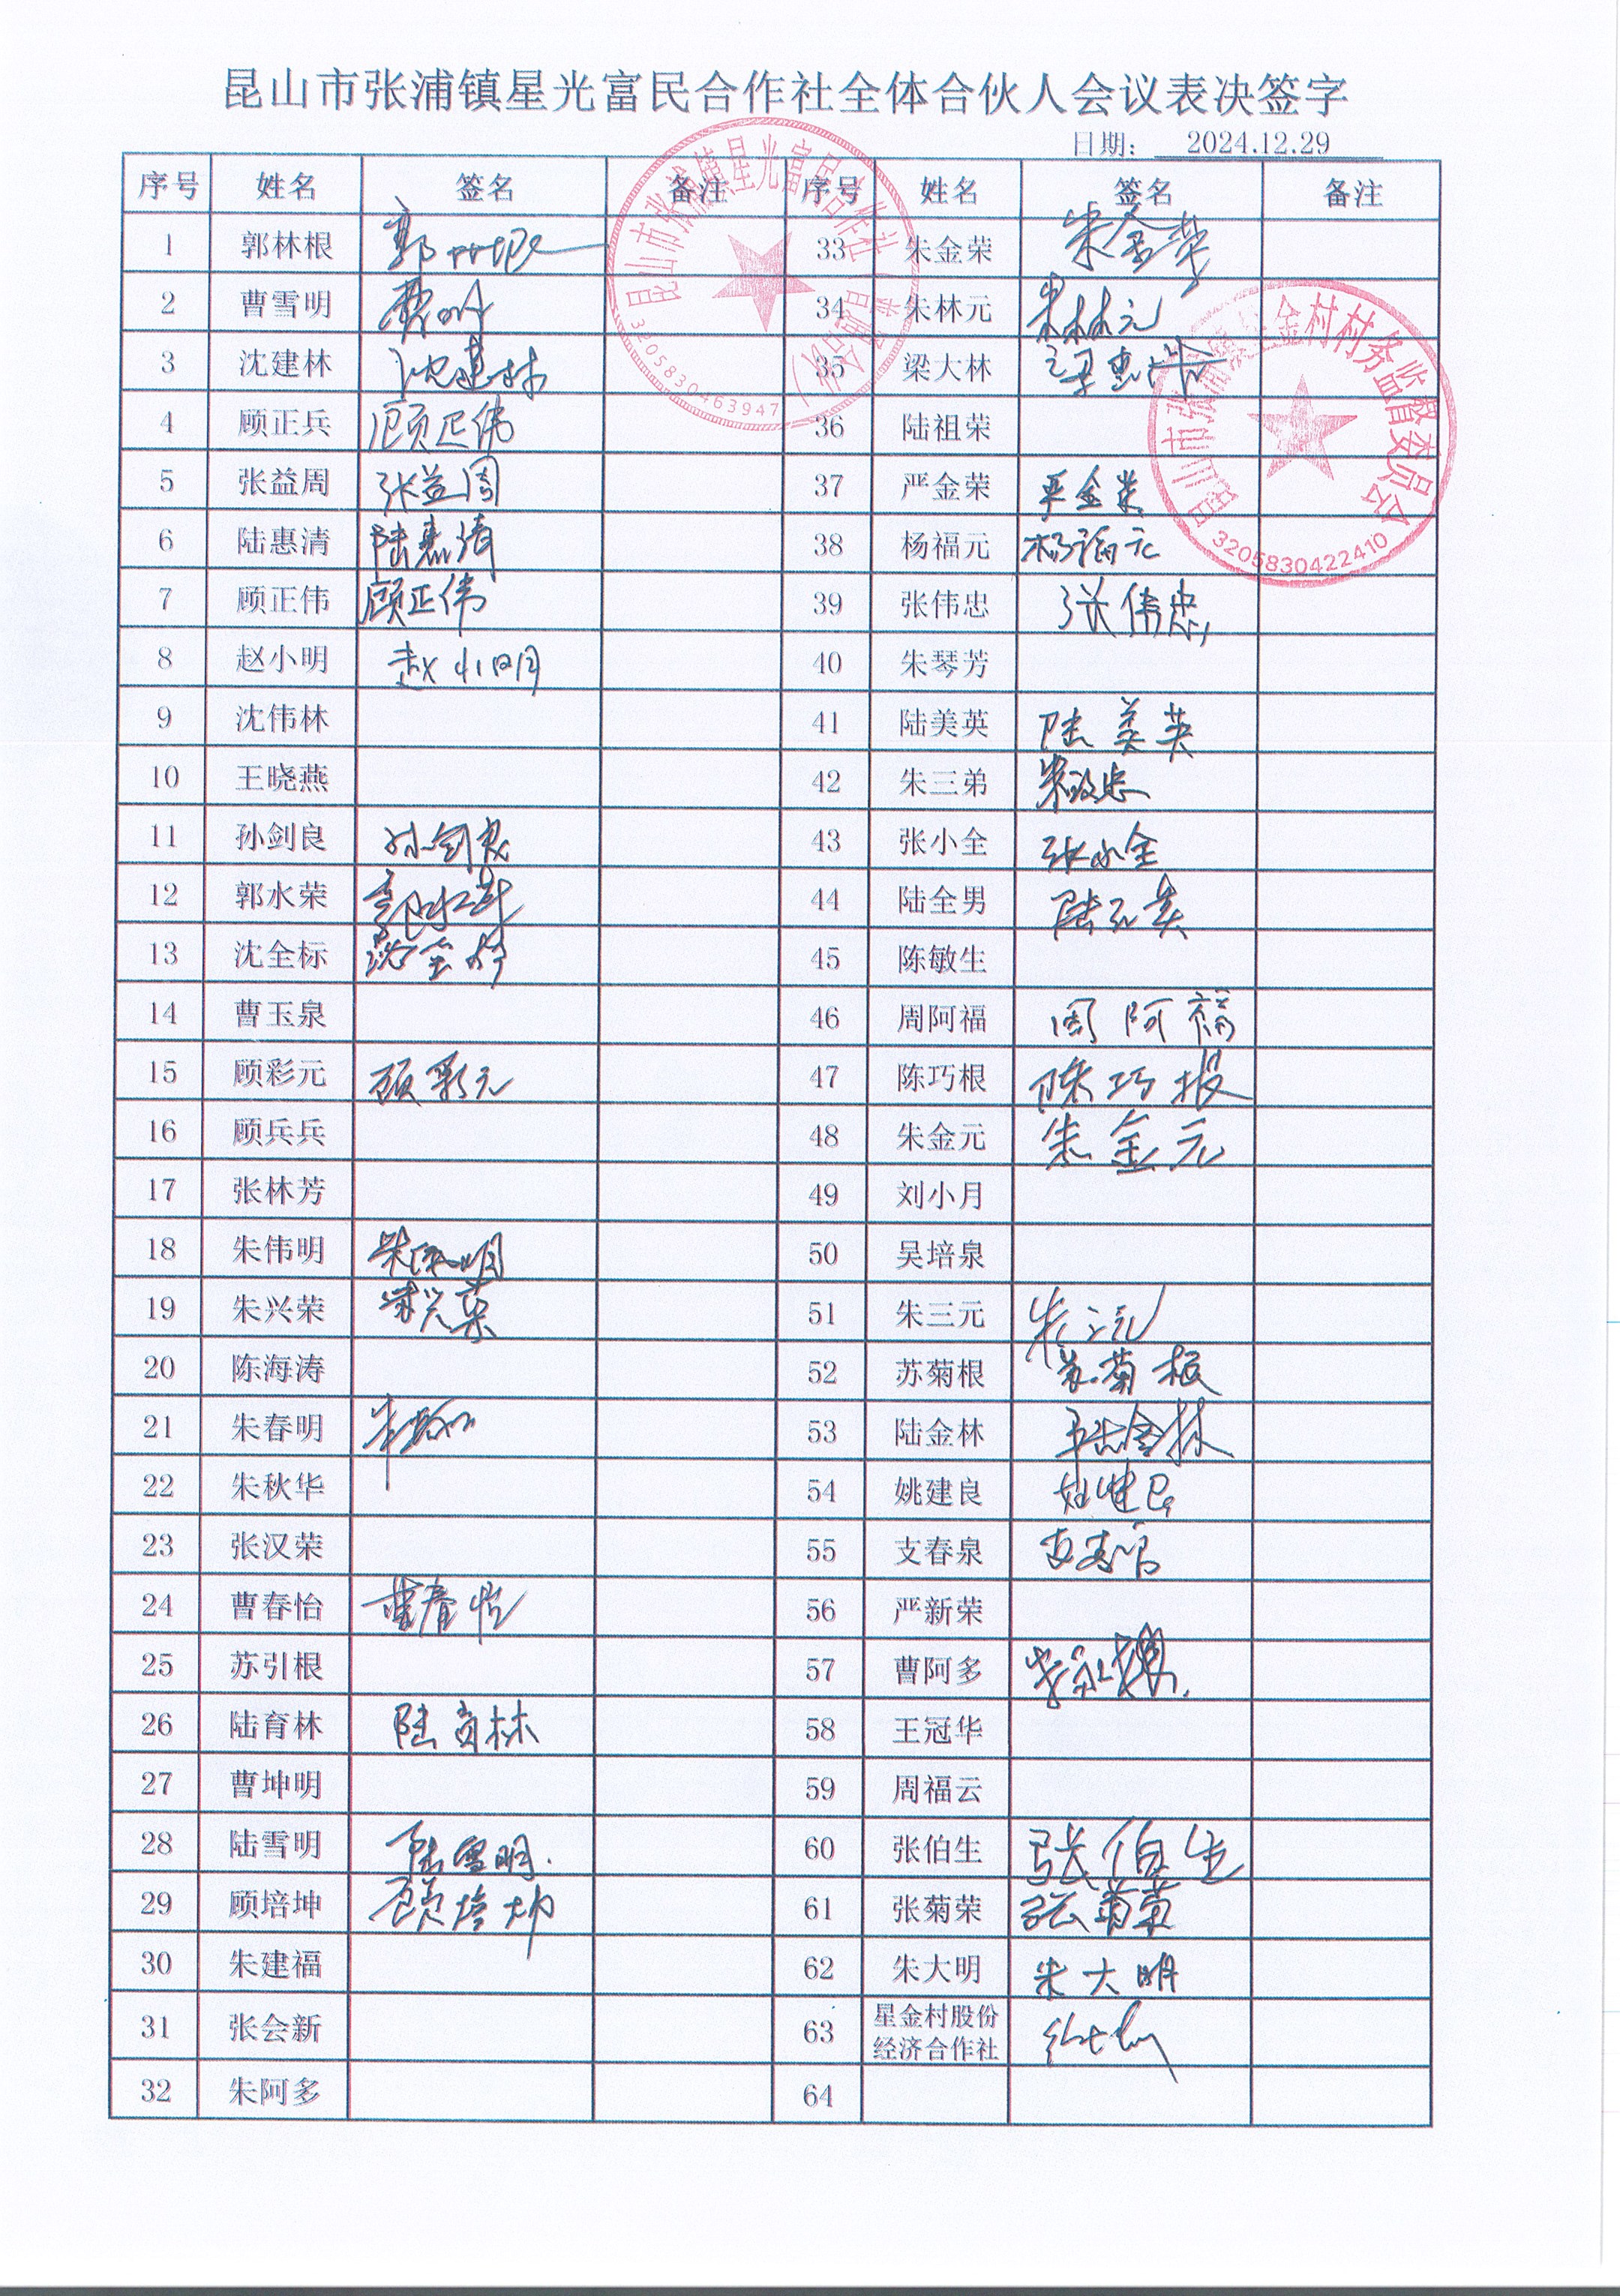 昆山市张浦镇星光富民合作社全体合伙人会议表决签字
日期： 2024.12.29
序号 姓名 签名 备注 序号 姓名 签名 备注
1 郭林根 郭林根 33 朱金荣 朱金荣
2 曹雪明 34 朱林元 朱林元
3 沈建林 沈建林 35 梁大林 梁惠
4 顾正兵 顾正伟 36 陆祖荣
5 张益周 张益周 37 严金荣 严金荣
6 陆惠清 陆惠清 38 杨福元 杨福元
7 顾正伟 顾正伟 39 张伟忠 张伟忠
8 赵小明 赵小明 40 朱琴芳
9 沈伟林 41 陆美英 陆美英
10 王晓燕 42 朱三弟
11 孙剑良 孙剑良 43 张小全 张小全
12 郭水荣 郭水荣 44 陆全男
13 沈全标 沈全标 45 陈敏生
14 曹玉泉 46 周阿福 周阿福
15 顾彩元 顾彩元 47 陈巧根 陈巧根
16 顾兵兵 48 朱金元 朱金元
17 张林芳 49 刘小月
18 朱伟明 朱伟明 50 吴培泉
19 朱兴荣 朱兴荣 51 朱三元 朱三元
20 陈海涛 52 苏菊根 苏菊根
21 朱春明 53 陆金林 陆金林
22 朱秋华 54 姚建良 姚建良
23 张汉荣 55 支春泉
24 曹春怡 曹春怡 56 严新荣
25 苏引根 57 曹阿多
26 陆育林 陆育林 58 王冠华
27 曹坤明 59 周福云
28 陆雪明 陆雪明 60 张伯生 张伯生
29 顾培坤 顾培坤 61 张菊荣 张菊荣
30 朱建福 62 朱大明 朱大明
31 张会新 63 星金村股份
经济合作社
32 朱阿多 64
昆山市张浦镇星光富民合作社（普通合伙）
3205830463947
昆山市张浦镇星金村村务监督委员会
3205830422410